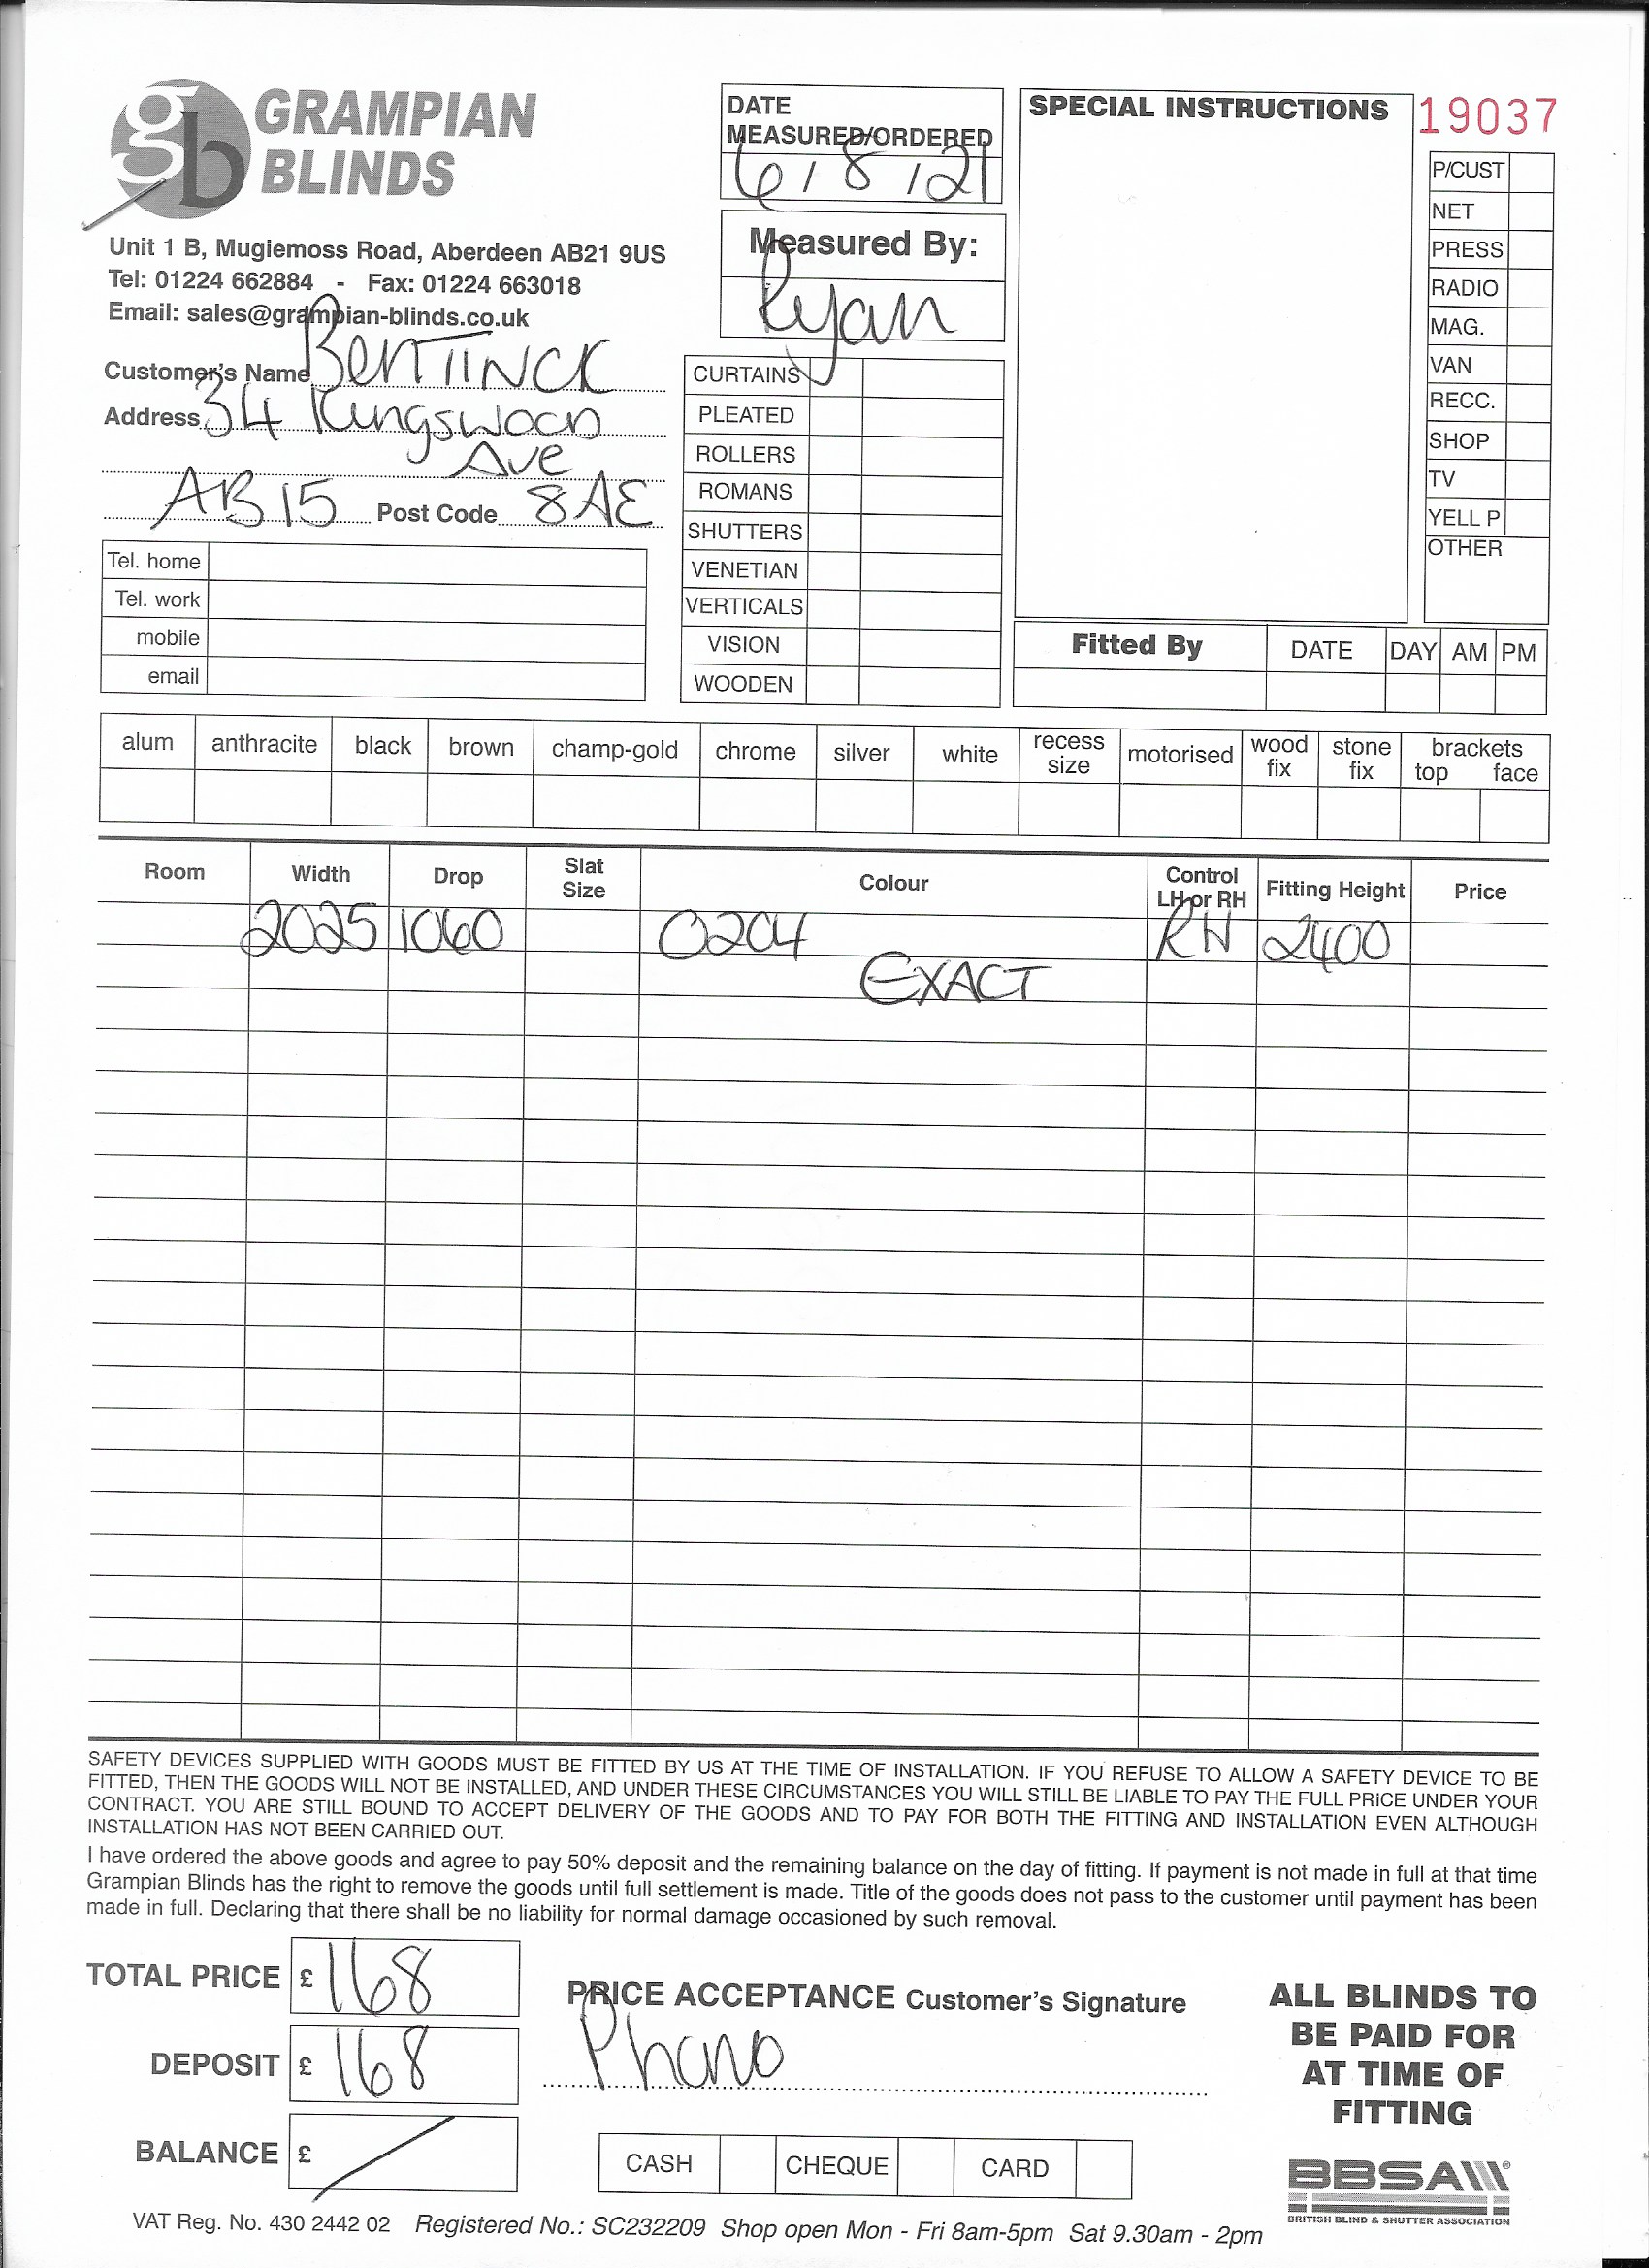 GRAMPIAN
BLINDS
Unit 1 B, Mugiemoss Road, Aberdeen AB21 9US
Tel: 01224 662884 - Fax: 01224 663018
Email: sales@grampian-blinds.co.uk
Customer's Name BENTINCK
Address 34 Kingswood
Ave
AB15 Post Code 8AE
Tel. home
Tel. work
mobile
email
DATE
MEASURED/ORDERED
6/8/21
Measured By:
Ryan
CURTAINS
PLEATED
ROLLERS
ROMANS
SHUTTERS
VENETIAN
VERTICALS
VISION
WOODEN
SPECIAL INSTRUCTIONS
19037
P/CUST
NET
PRESS
RADIO
MAG.
VAN
RECC.
SHOP
TV
YELL P
OTHER
Fitted By DATE DAY AM PM
alum anthracite black brown champ-gold chrome silver white recess size motorised wood fix stone fix brackets top face
Room Width Drop Slat Size Colour Control LH or RH Fitting Height Price
2025 1060 0204 RH 2400
EXACT
SAFETY DEVICES SUPPLIED WITH GOODS MUST BE FITTED BY US AT THE TIME OF INSTALLATION. IF YOU REFUSE TO ALLOW A SAFETY DEVICE TO BE
FITTED, THEN THE GOODS WILL NOT BE INSTALLED, AND UNDER THESE CIRCUMSTANCES YOU WILL STILL BE LIABLE TO PAY THE FULL PRICE UNDER YOUR
CONTRACT. YOU ARE STILL BOUND TO ACCEPT DELIVERY OF THE GOODS AND TO PAY FOR BOTH THE FITTING AND INSTALLATION EVEN ALTHOUGH
INSTALLATION HAS NOT BEEN CARRIED OUT.
I have ordered the above goods and agree to pay 50% deposit and the remaining balance on the day of fitting. If payment is not made in full at that time
Grampian Blinds has the right to remove the goods until full settlement is made. Title of the goods does not pass to the customer until payment has been
made in full. Declaring that there shall be no liability for normal damage occasioned by such removal.
TOTAL PRICE £ 168
DEPOSIT £ 168
BALANCE £ /
PRICE ACCEPTANCE Customer's Signature
CASH CHEQUE CARD
ALL BLINDS TO
BE PAID FOR
AT TIME OF
FITTING
BBSA
BRITISH BLIND & SHUTTER ASSOCIATION
VAT Reg. No. 430 2442 02 Registered No.: SC232209 Shop open Mon - Fri 8am-5pm Sat 9.30am - 2pm